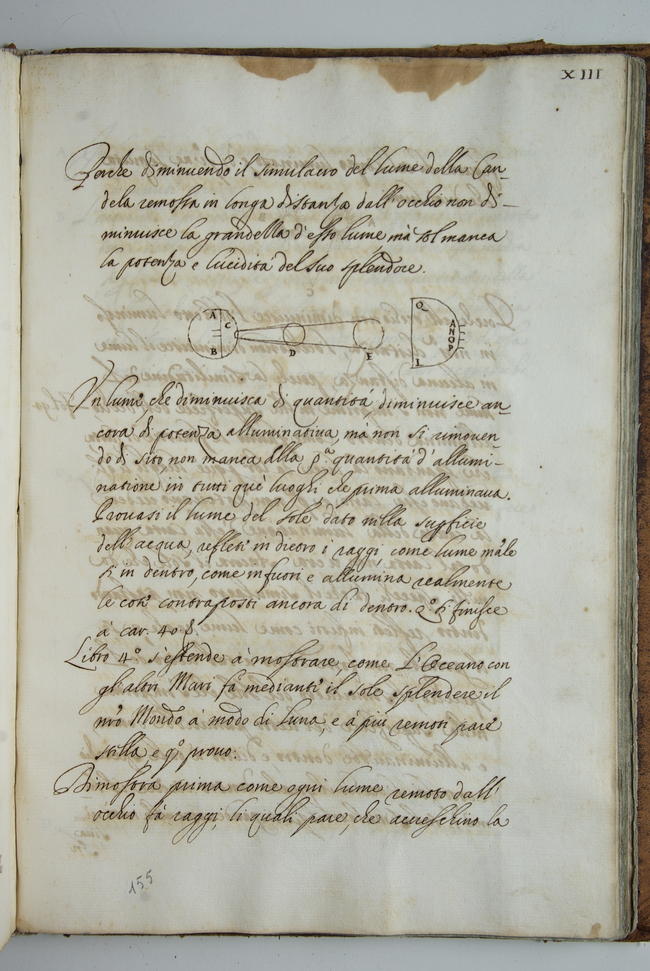 XIII
Perche diminuendo il simulacro del lume della Can-
dela remossa in longa distanza dall'occhio non di-
minuisce la grandella d'esso lume mà sol manca
la potenza e lucidità del suo splendore.
A
C
B
D
E
O
I
A N O P
Un lume, che diminuisca di quantità, diminuisce an-
cora di potenza alluminativa, mà non si rimoven-
do di sito, non manca alla pª quantità d'allumi-
natione in tutti que' luoghi, che prima alluminava.
Provasi il lume del sole dato nella supficie
dell'acqua, refleti in dietro i raggi, come lume mà le
si in dentro, come in fuori e allumina realmente
le cose contraposti ancora di dentro. qº si finisce
à car. 40
Libro 4º s'estende à mostrare come L'Oceano con
gl'altri Mari fà medianti il sole splendere il
nrõ Mondo à modo di Luna, e à più remoti pare
stilla, e qº provo.
Dimostra prima come ogni lume remoto dall'
occhio fà raggi, li quali pare, che accreschino la
155